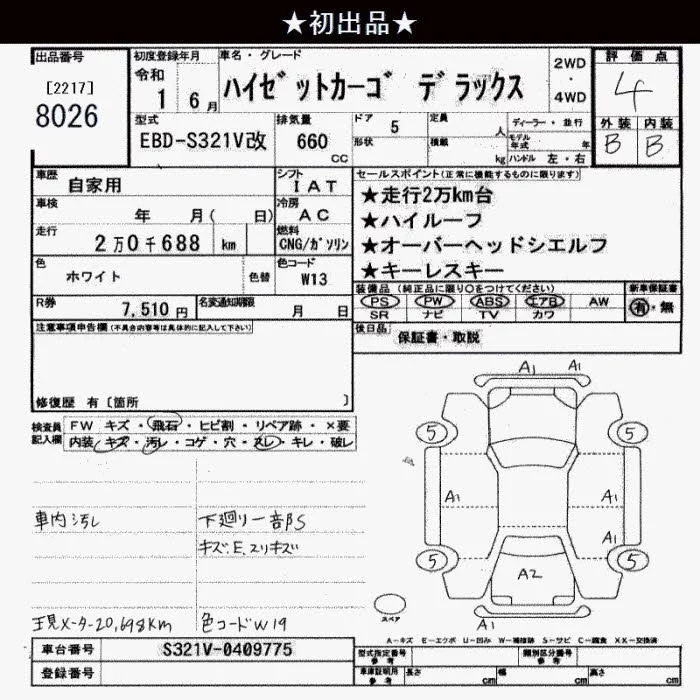 ★初出品★
出品番号
[2217]
8026
初度登録年月
令和
1 6月
車名・グレード
ハイゼットカーゴ デラックス
2WD
・
4WD
評価点
4
外装 内装
B B
型式
EBD-S321V改
排気量
660
CC
ドア
5
形状
定員
人
積載
kg
ディーラー・並行
モデル年式 年
ハンドル 左・右
車歴
自家用
シフト
IAT
車検
年 月( 日)
冷房
AC
走行
2万0千688 km
燃料
CNG/ガソリン
色
ホワイト
色替
色コード
W13
R券
7,510円
名変通知期限
月 日
セールスポイント(正常に機能するものに限ります)
★走行2万km台
★ハイルーフ
★オーバーヘッドシエルフ
★キーレスキー
装備品 (純正品に限り○をつけてください)
PS PW ABS エアB AW
SR ナビ TV カワ
新車保証書
有・無
後日品
保証書・取説
注意事項申告欄(不具合内容等は具体的に記入して下さい)
修復歴 有〔箇所 〕
検査員記入欄
FW キズ・飛石・ヒビ割・リペア跡・×要
内装 キズ・汚レ・コゲ・穴・スレ・キレ・破レ
車内汚レ
下廻り一部S
キズ.E.スリキズ
現メーター20,698km
色コードW19
A1 A1
5 5
A1 A1
A1
5 5
A2
A1
スペア
A-キズ E-エクボ U-凹み W-補修跡 S-サビ C-腐食 XX-交換済
車台番号
S321V-0409775
登録番号
型式指定番号
参考
類別区分番号
参考
車庫証明用
参考
長さ cm
幅 cm
高さ cm